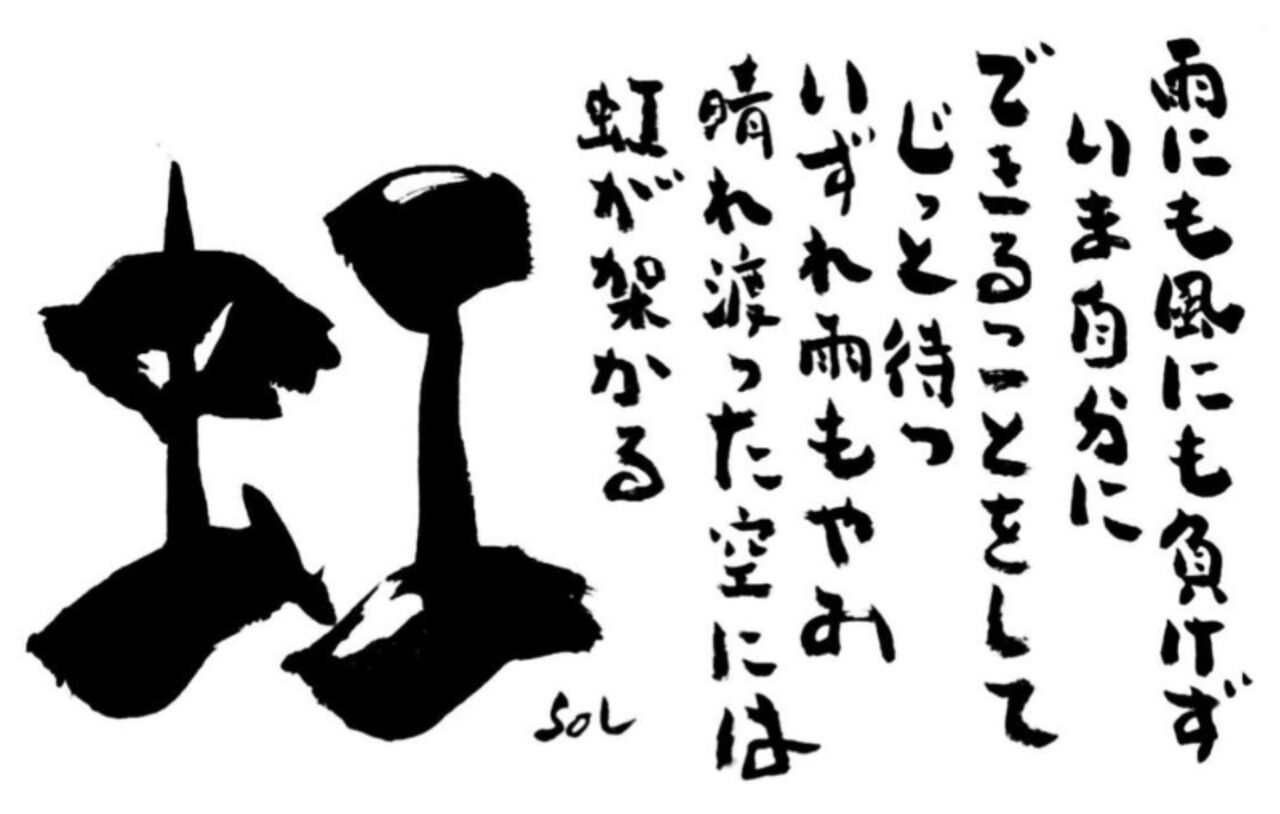 雨にも風にも負けず
いま自分に
できることをして
じっと待つ
いずれ雨もやみ
晴れ渡った空には
虹が架かる
虹
SOL